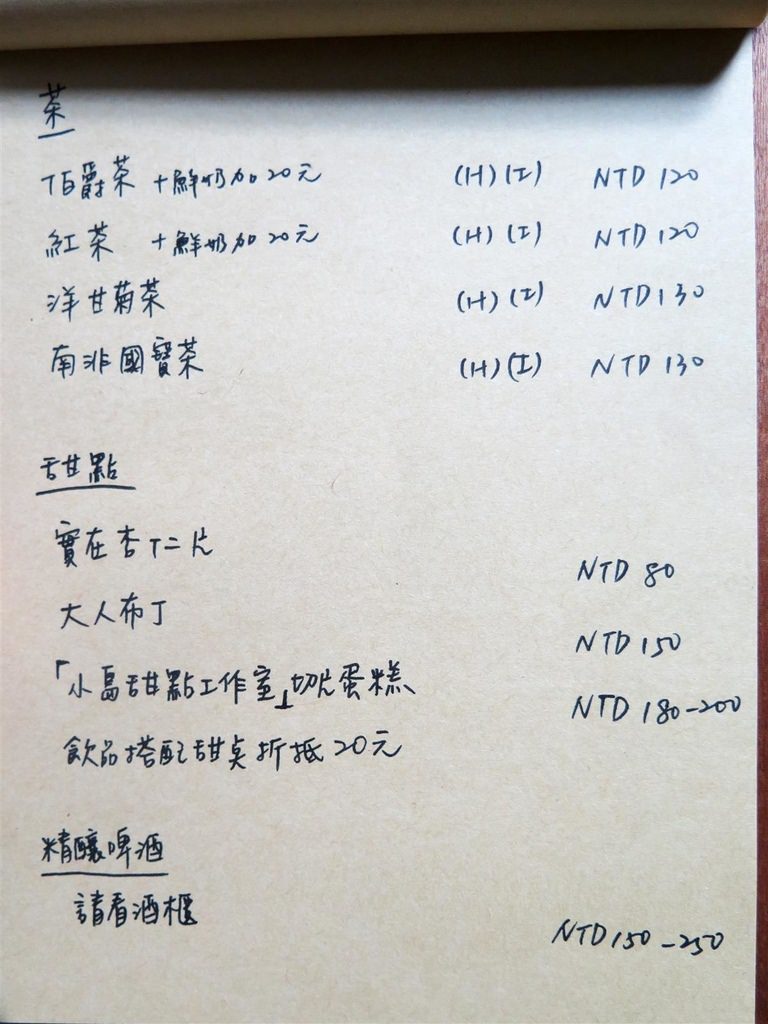 茶
伯爵茶 +鮮奶加20元 (H) (I) NTD 120
紅茶 +鮮奶加20元 (H) (I) NTD 120
洋甘菊茶 (H) (I) NTD 130
南非國寶茶 (H) (I) NTD 130
甜點
實在杏仁片 NTD 80
大人布丁 NTD 150
「小島甜點工作室」切片蛋糕 NTD 180-200
飲品搭配甜点折抵20元
精釀啤酒
請看酒櫃 NTD 150-250